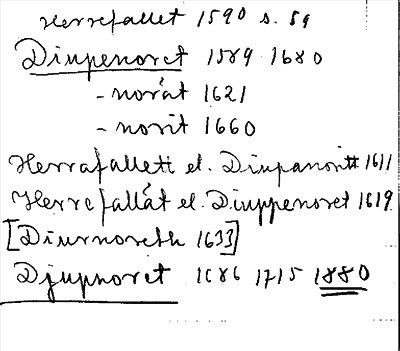 Herrefallet 1590 s. 59
Diupenoret 1589 1680
- noråt 1621
- norit 1660
Herrafallett el. Diupanoritt 1611
Herrefallåt el. Diuppenoret 1619
[Diurnoreth 1633]
Djupnoret 1686 1715 1880